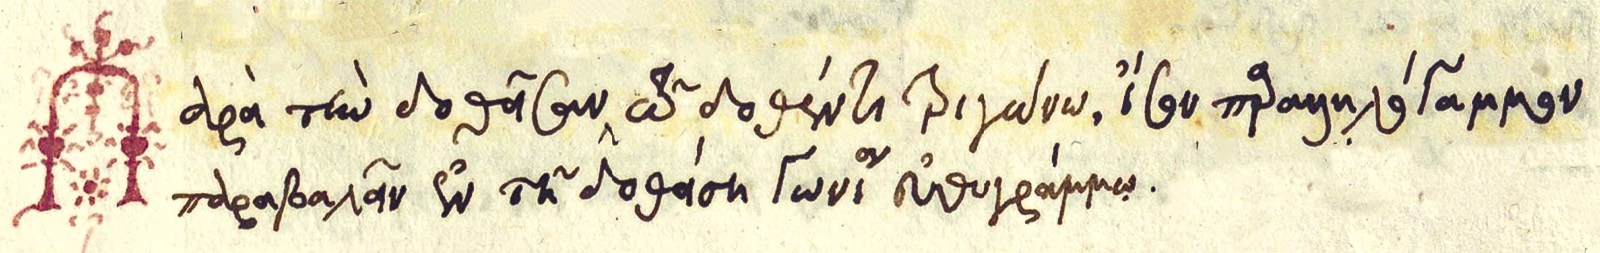 Παρὰ τὴν δοθεῖσαν εὐθεῖαν τῷ δοθέντι τριγώνῳ, ἴσον παραλληλόγραμμον
παραβαλεῖν ἐν τῇ δοθείσῃ γωνίᾳ εὐθυγράμμῳ.